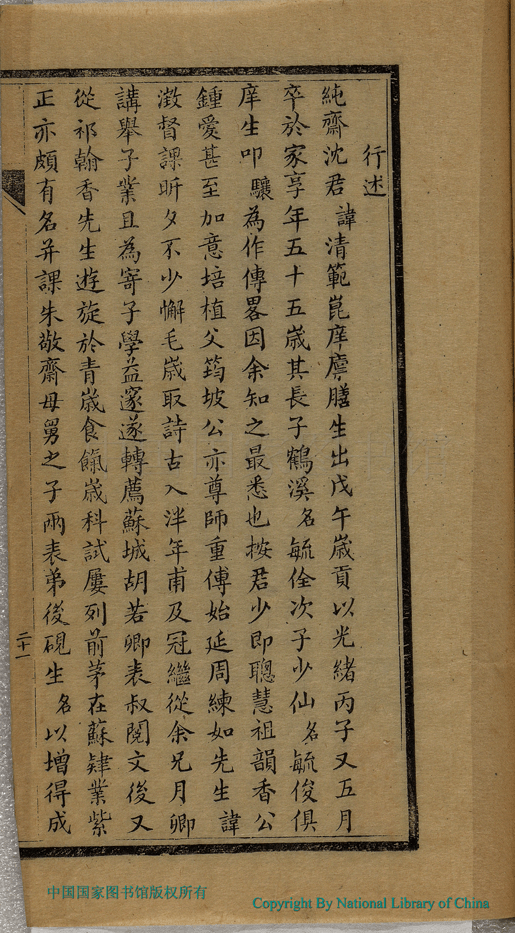 行述
純齋沈君諱清範崑庠廪膳生出戊午歲貢以光緒丙子又五月
卒於家享年五十五歲其長子鶴溪名毓佺次子少仙名毓俊俱
庠生叩驤為作傳畧因余知之最悉也按君少即聰慧祖韻香公
鍾愛甚至加意培植父筠坡公亦尊師重傅始延周練如先生諱
澂督課昕夕不少懈毛歲取詩古入泮年甫及冠繼從余兄月卿
講舉子業且為寄子學益邃遂轉薦蘇城胡若卿表叔閱文後又
從祁翰香先生遊旋於青歲食餼歲科試屢列前茅在蘇肄業紫
正亦頗有名并課朱敬齋母舅之子兩表弟後硯生名以增得成
二十一
中国国家图书馆版权所有
Copyright By National Library of China